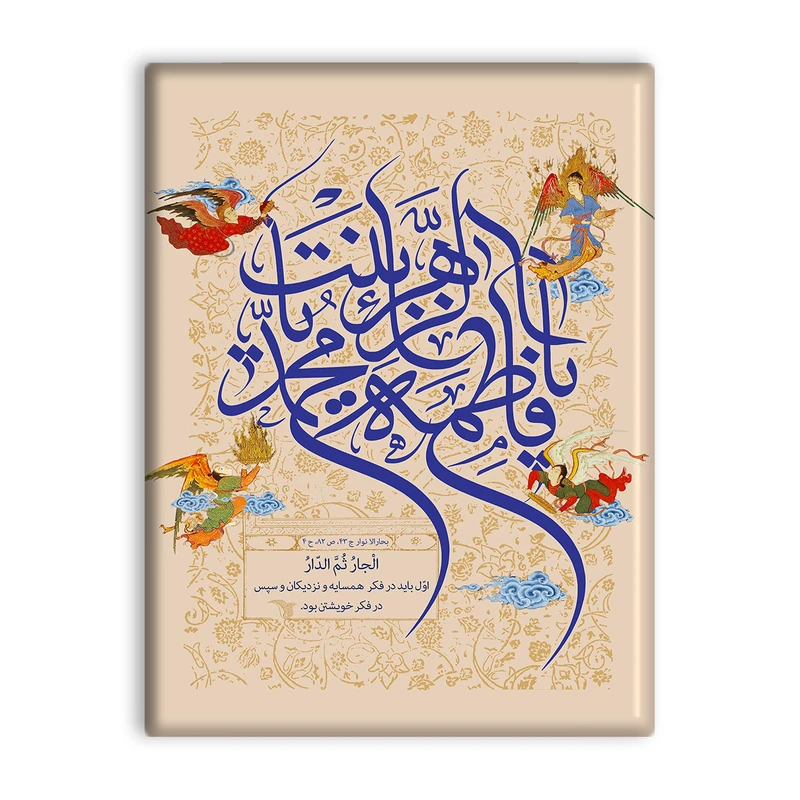 یا فاطمة الزهراء یا بنت محمد
بحارالانوار ج ۴۳، ص ۸۲، ح ۴
الْجارُ ثُمَّ الدّارُ
اوّل باید در فکر همسایه و نزدیکان و سپس
در فکر خویشتن بود.